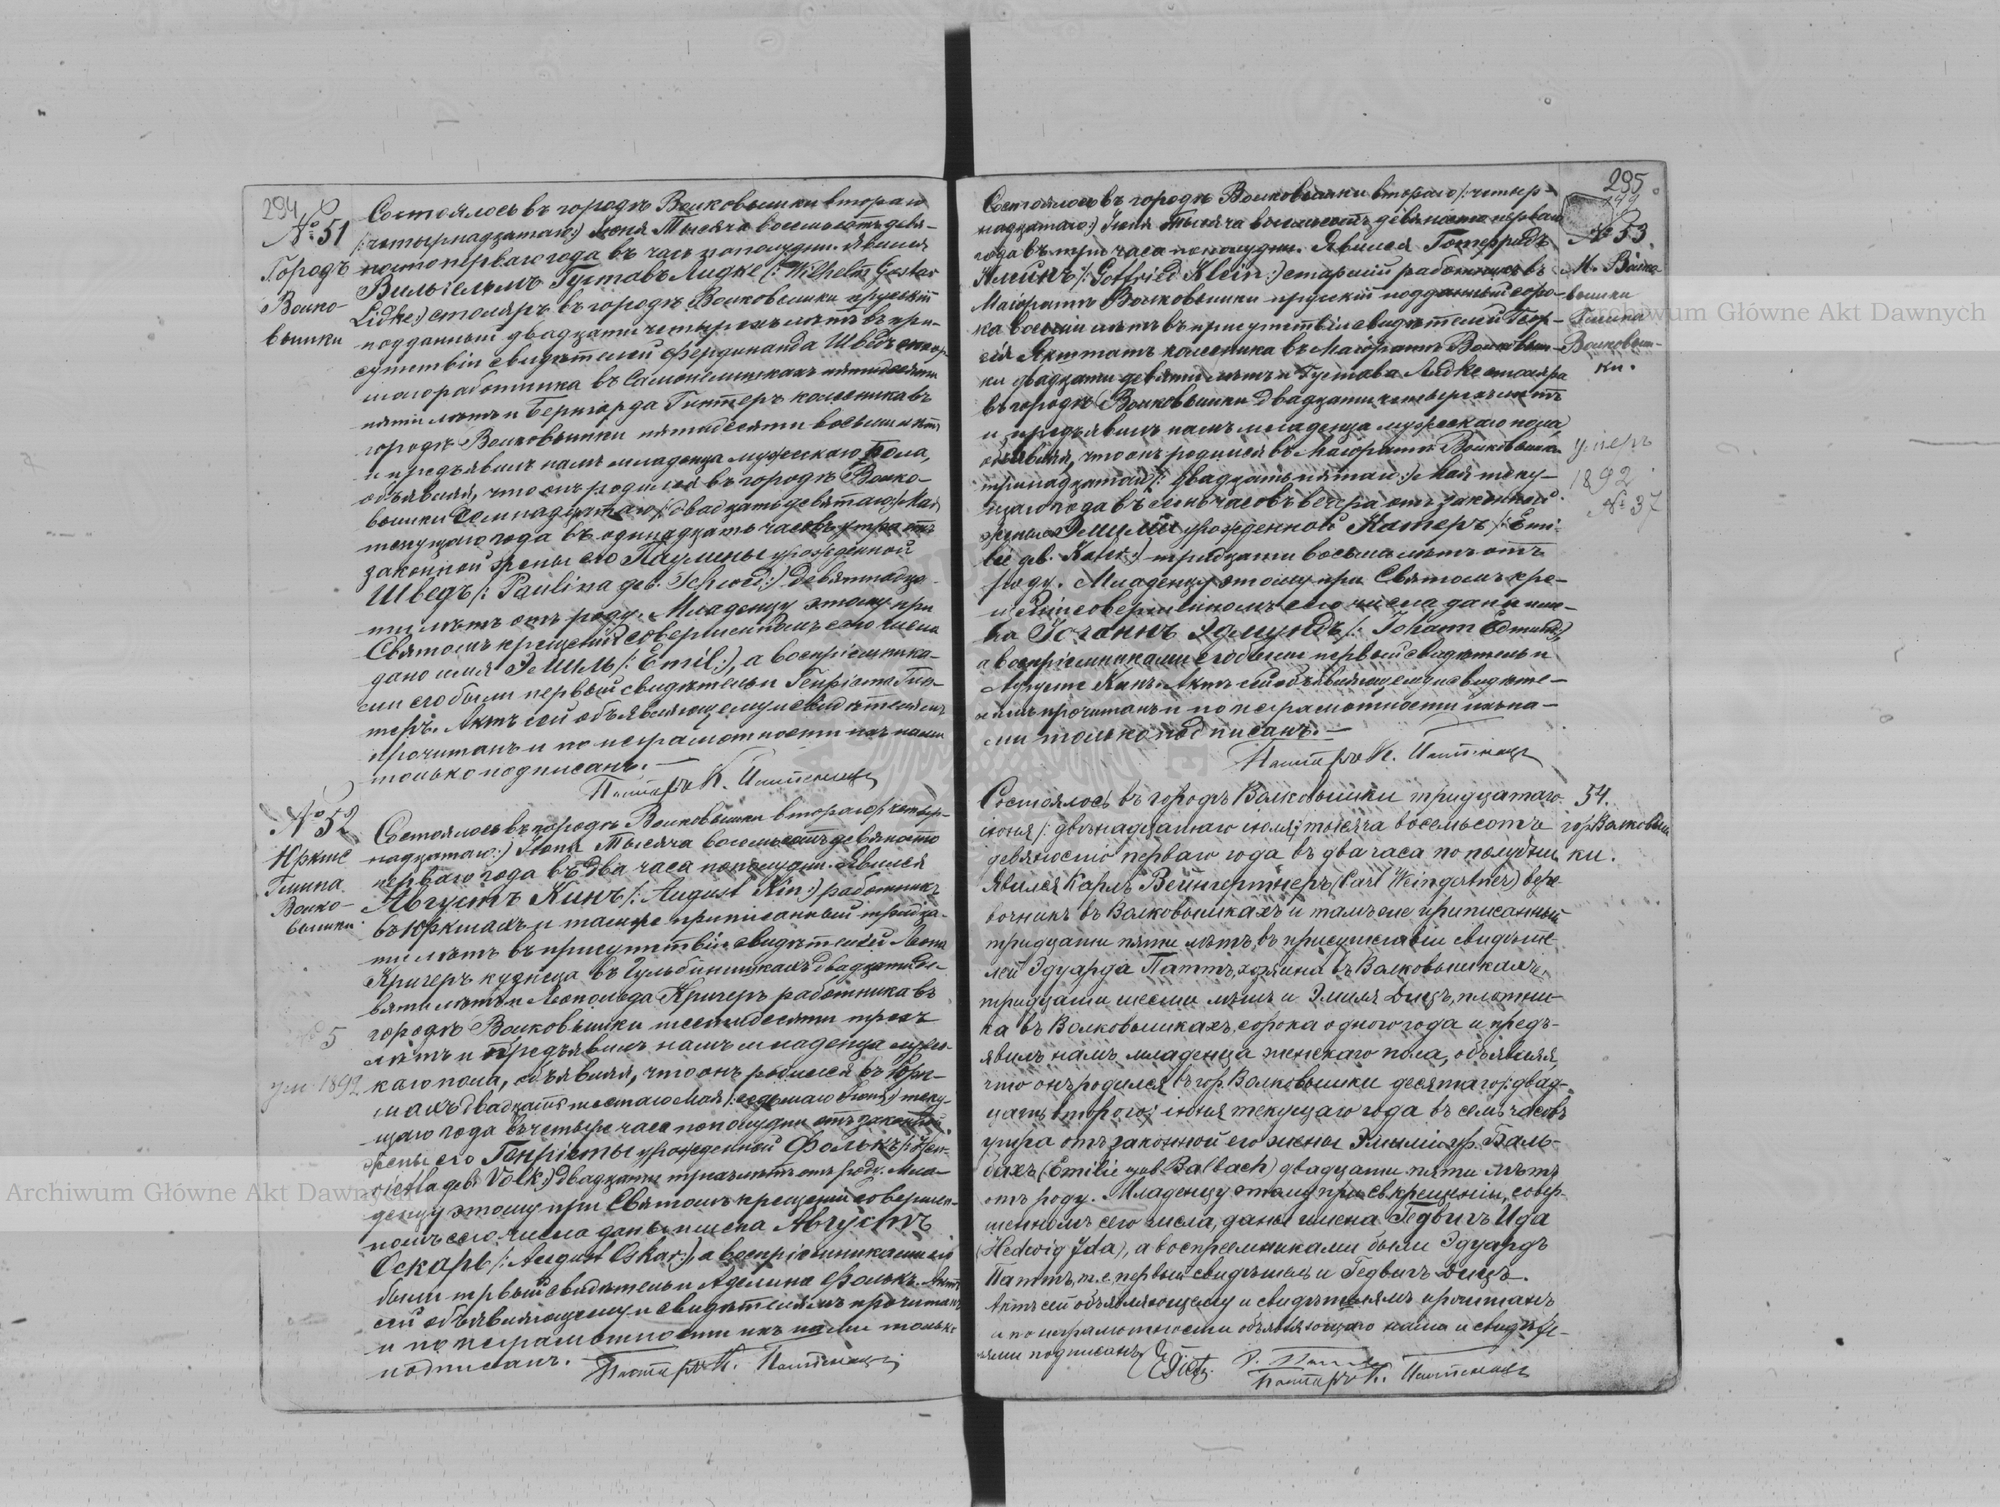 294
№ 51
Городъ
Волко-
вышки
Состоялось въ городѣ Волковышки втораго
(:четырнадцатаго:) Іюня Тысяча восемьсотъ девя-
носто перваго года въ часъ пополудни. Явился
Вильгельмъ Густавъ Лидке (: Wilhelm Gustav
Lidke:) столяръ въ городѣ Волковышки прускій
подданный двадцати четырехъ лѣтъ въ при-
сутствіи свидѣтелей Фердинанда Шведъ
работника въ пятидесяти
пяти лѣтъ и Бернгарда Гинтеръ колесника въ
городѣ Волковышки пятидесяти восьми лѣтъ
и предъявилъ намъ младенца мужескаго пола,
объявляя, что онъ родился въ городѣ Волко-
вышки семнадцатаго (: двадцать девятаго:) Мая
текущаго года въ одинадцать часовъ утра отъ
законной жены его Паулины урожденной
Шведъ (: Paulina geb. Schwed:) девятнадца-
ти лѣтъ отъ роду. Младенцу этому при
Святомъ крещеніи совершенномъ сего числа
дано имя Эмиль (: Emil:), а воспріемника-
ми его были первый свидѣтель и Генріета Гин-
теръ. Актъ сей объявляющему и свидѣтелямъ
прочитанъ и по неграмотности ихъ нами
только подписанъ.—
Пасторъ К.
№ 52
Юркше
Гмина
Волко-
вышки
5
ум. 1892
Состоялось въ городѣ Волковышки втораго (: четыр-
надцатаго:) Іюня Тысяча восемьсотъ девяносто
перваго года въ два часа пополудни. Явился
Августъ Кинъ (: August Kin:) работникъ
въ Юркшахъ и тамже приписанный тридца-
ти лѣтъ въ присутствіи свидѣтелей
Кригеръ кузнеца въ двадцати де-
вяти лѣтъ и Леопольда Кригеръ работника въ
городѣ Волковышки шестидесяти трехъ
лѣтъ и предъявилъ намъ младенца мужес-
каго пола, объявляя, что онъ родился въ Юрк-
шахъ двадцать шестаго Мая (: седьмаго Іюня:) теку-
щаго года въ четыре часа пополудни отъ законной
жены его Генріеты урожденной Фолькъ (: Hen-
rietta geb. Volk:) двадцати трехъ лѣтъ отъ роду. Мла-
денцу этому при Святомъ крещеніи совершен-
номъ сего числа даны имена Августъ
Оскаръ (: August Oskar:), а воспріемниками его
были первый свидѣтель и Аделина Фолькъ. Актъ
сей объявляющему и свидѣтелямъ прочитанъ
и по неграмотности ихъ нами только
подписанъ.
Пасторъ К.
295
№ 53.
М. Волко-
вышки
Гмина
Волковыш-
ки.
умеръ
1892
№ 37
Состоялось въ городѣ Волковышки втораго (: четыр-
надцатаго:) Іюня Тысяча восемьсотъ девяносто перваго
года въ три часа пополудни. Явился Готфридъ
Клейнъ (: Gottfried Klein:) старшій работникъ въ
Маіоратѣ Волковышки прускій подданный соро-
ка восьми лѣтъ въ присутствіи свидѣтелей Геор-
гія колесника въ Маіоратѣ Волковыш-
ки двадцати девяти лѣтъ и Густава Лидке столяра
въ городѣ Волковышки двадцати четырехъ лѣтъ
и предъявилъ намъ младенца мужескаго пола,
объявляя, что онъ родился въ Маіоратѣ Волковышки
тринадцатаго (: двадцать пятаго:) Мая теку-
щаго года въ часовъ вечера отъ законной
жены Эмиліи урожденной (: Emi-
lie geb.:) тридцати восьми лѣтъ отъ
роду. Младенцу этому при Святомъ кре-
щеніи совершенномъ сего числа даны име-
на Іоганнъ Эдмундъ (: Johann Edmund:),
а воспріемниками его были первый свидѣтель и
Актъ сей объявляющему и свидѣте-
лямъ прочитанъ и по неграмотности ихъ на-
ми только подписанъ.—
Пасторъ К.
54.
гор. Волковыш-
ки.
Состоялось въ городѣ Волковышки тридцатаго
іюня (: двѣнадцатаго іюля:) тысяча восемьсотъ
девяносто перваго года въ два часа по полудни
Явился Карлъ Вейнгертнеръ (Carl Weingertner) вере-
вочникъ въ Волковышкахъ и тамъ же приписанный
тридцати пяти лѣтъ, въ присутствіи свидѣте-
лей Эдуарда Паттъ, хозяина въ Волковышкахъ,
тридцати шести лѣтъ и Эмиля Дицъ, плотни-
ка въ Волковышкахъ, сорока одного года и предъ-
явилъ намъ младенца женскаго пола, объявляя,
что онъ родился въ гор. Волковышки десятаго (: двад-
цать втораго:) іюня текущаго года въ семь часовъ
утра отъ законной его жены Эмиліи ур. Баль-
бахъ (Emilie geb. Balbach) двадцати пяти лѣтъ
отъ роду. Младенцу этому при Св. крещеніи, совер-
шенномъ сего числа, даны имена Гедвигъ Ида
(Hedwig Ida), а воспреемниками были Эдуардъ
Паттъ, т. е. первый свидѣтель и Гедвигъ Дицъ.
Актъ сей объявляющему и свидѣтелямъ прочитанъ
и по неграмотности объявляющаго нами и свидѣте-
лями подписанъ.
E. Dietz.
Пасторъ К.
Archiwum Główne Akt Dawnych
Archiwum Główne Akt Dawnych